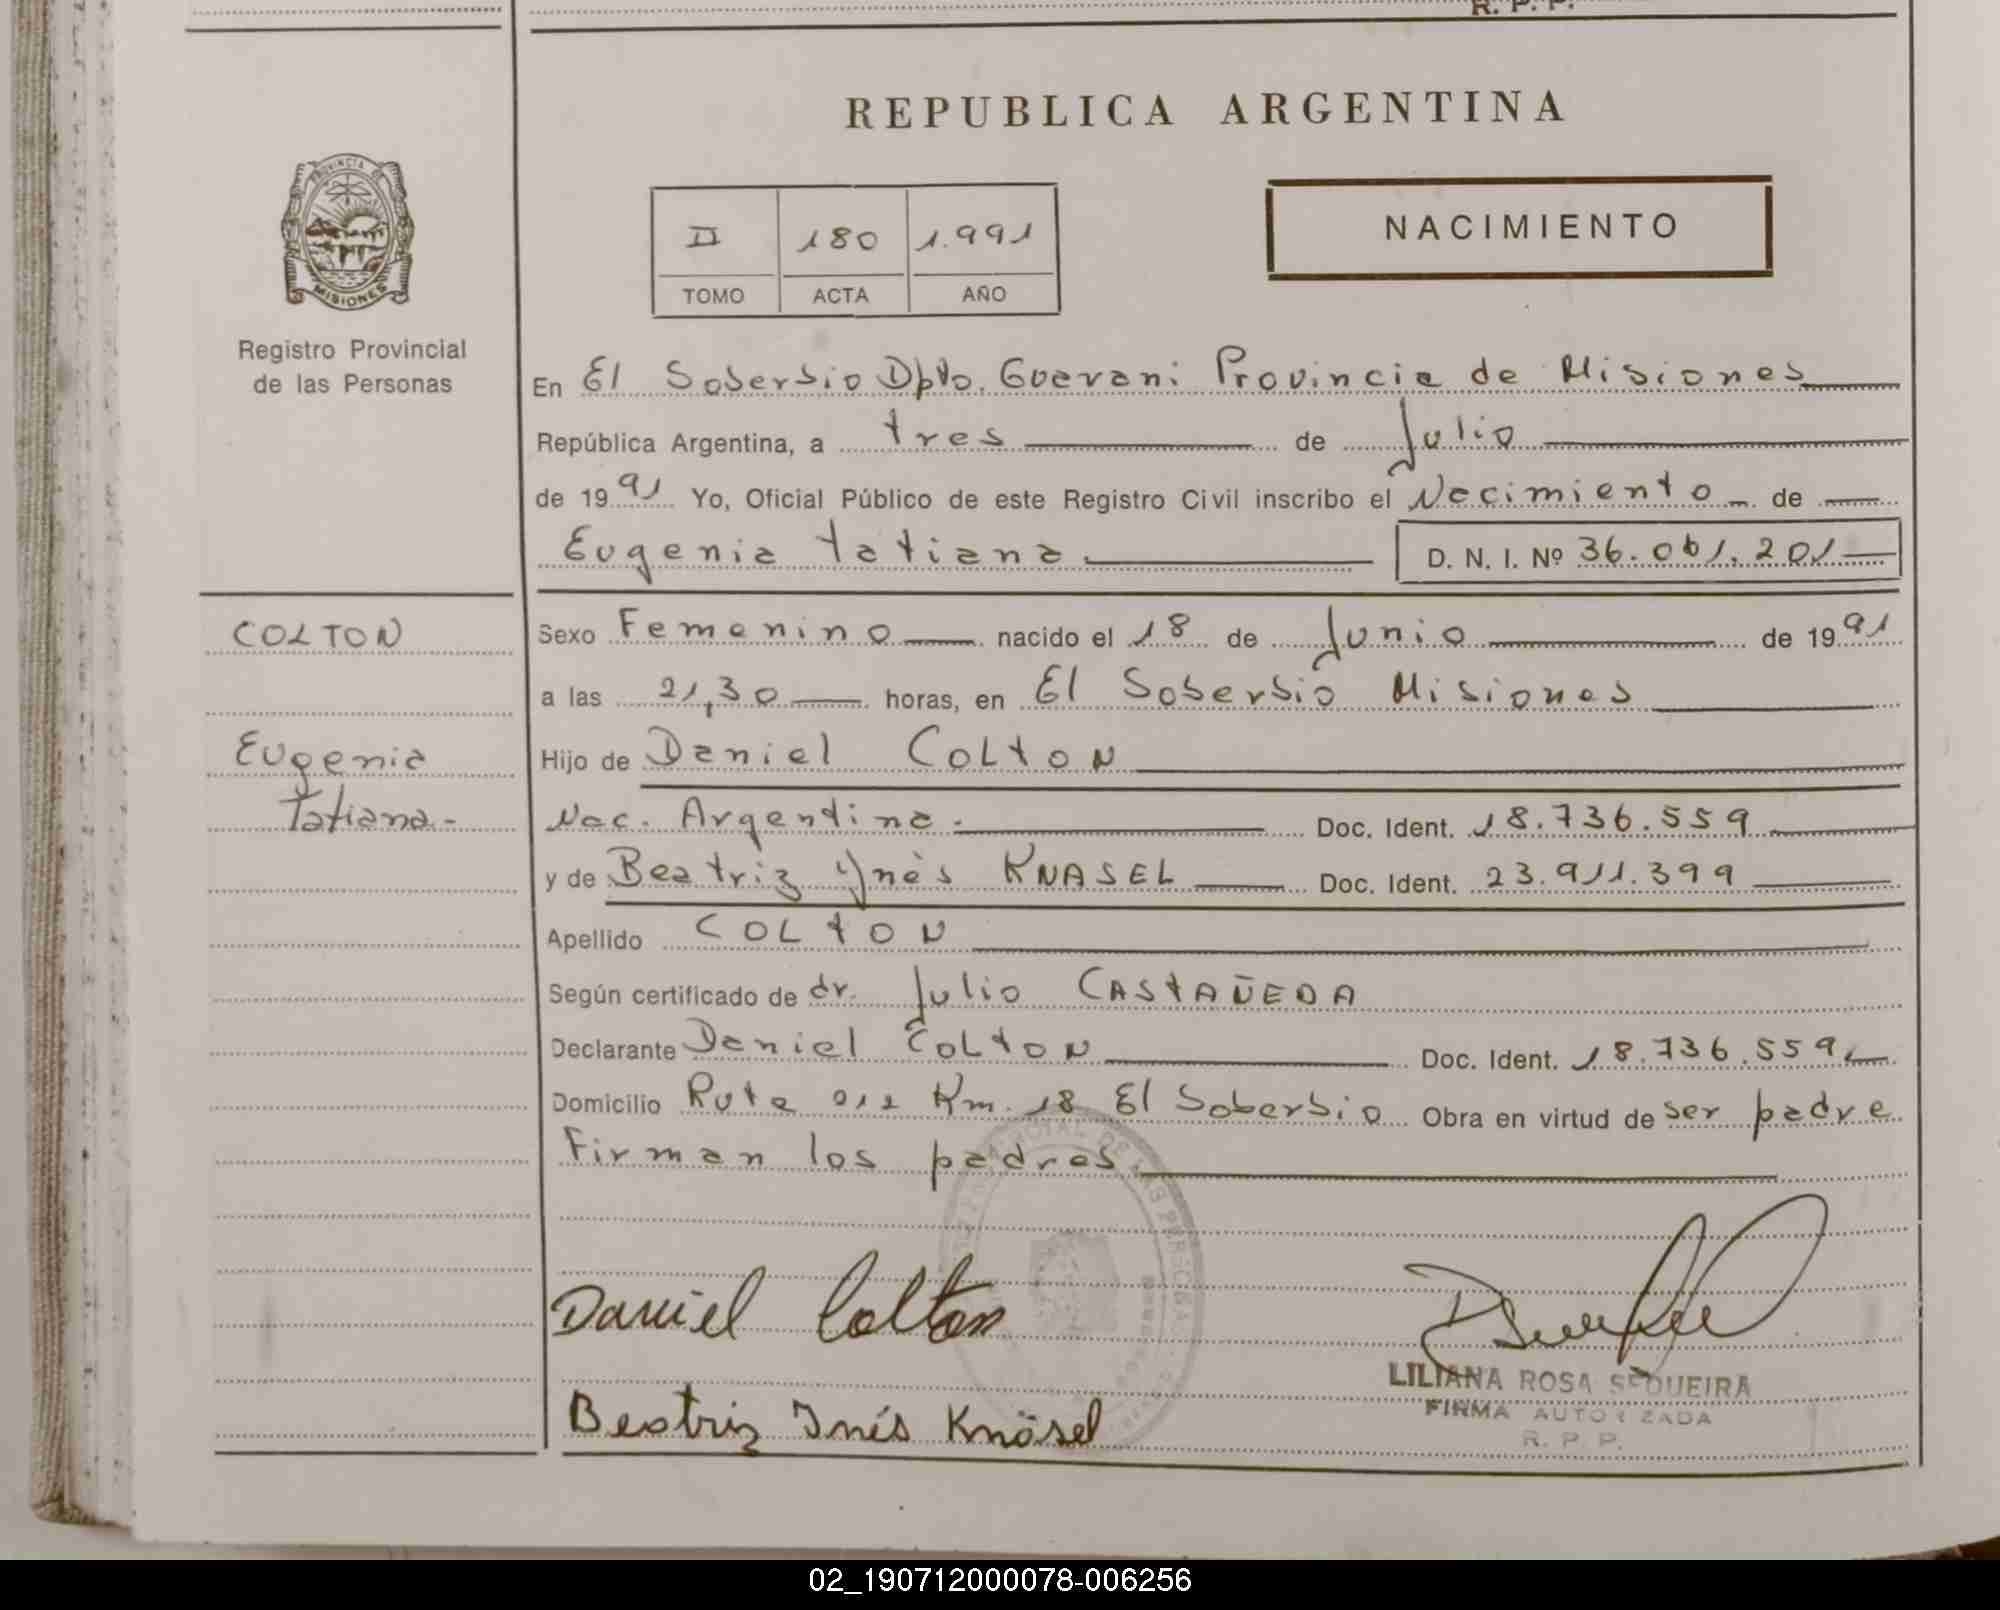 R. P. P.
REPUBLICA ARGENTINA
PROVINCIA DE
MISIONES
Registro Provincial
de las Personas
II 180 1.991
TOMO ACTA AÑO
NACIMIENTO
En El Soberbio Dpto. Guarani Provincia de Misiones
República Argentina, a tres de Julio
de 1991 Yo, Oficial Público de este Registro Civil inscribo el Nacimiento de
Eugenia Tatiana D. N. I. Nº 36.061.201
COLTON
Eugenia
Tatiana.-
Sexo Femenino nacido el 18 de Junio de 1991
a las 21,30 horas, en El Soberbio Misiones
Hijo de Daniel COLTON
Nac. Argentina. Doc. Ident. 18.736.559
y de Beatriz Ynès KNASEL Doc. Ident. 23.911.399
Apellido COLTON
Según certificado de dr. Julio CASTAÑEDA
Declarante Daniel COLTON Doc. Ident. 18.736.559
Domicilio Ruta 012 Km. 18 El Soberbio Obra en virtud de ser padre
Firman los padres.
Daniel Colton
Beatriz Inés Knäsel
LILIANA ROSA SEQUEIRA
FIRMA AUTORIZADA
R. P. P.
02_190712000078-006256